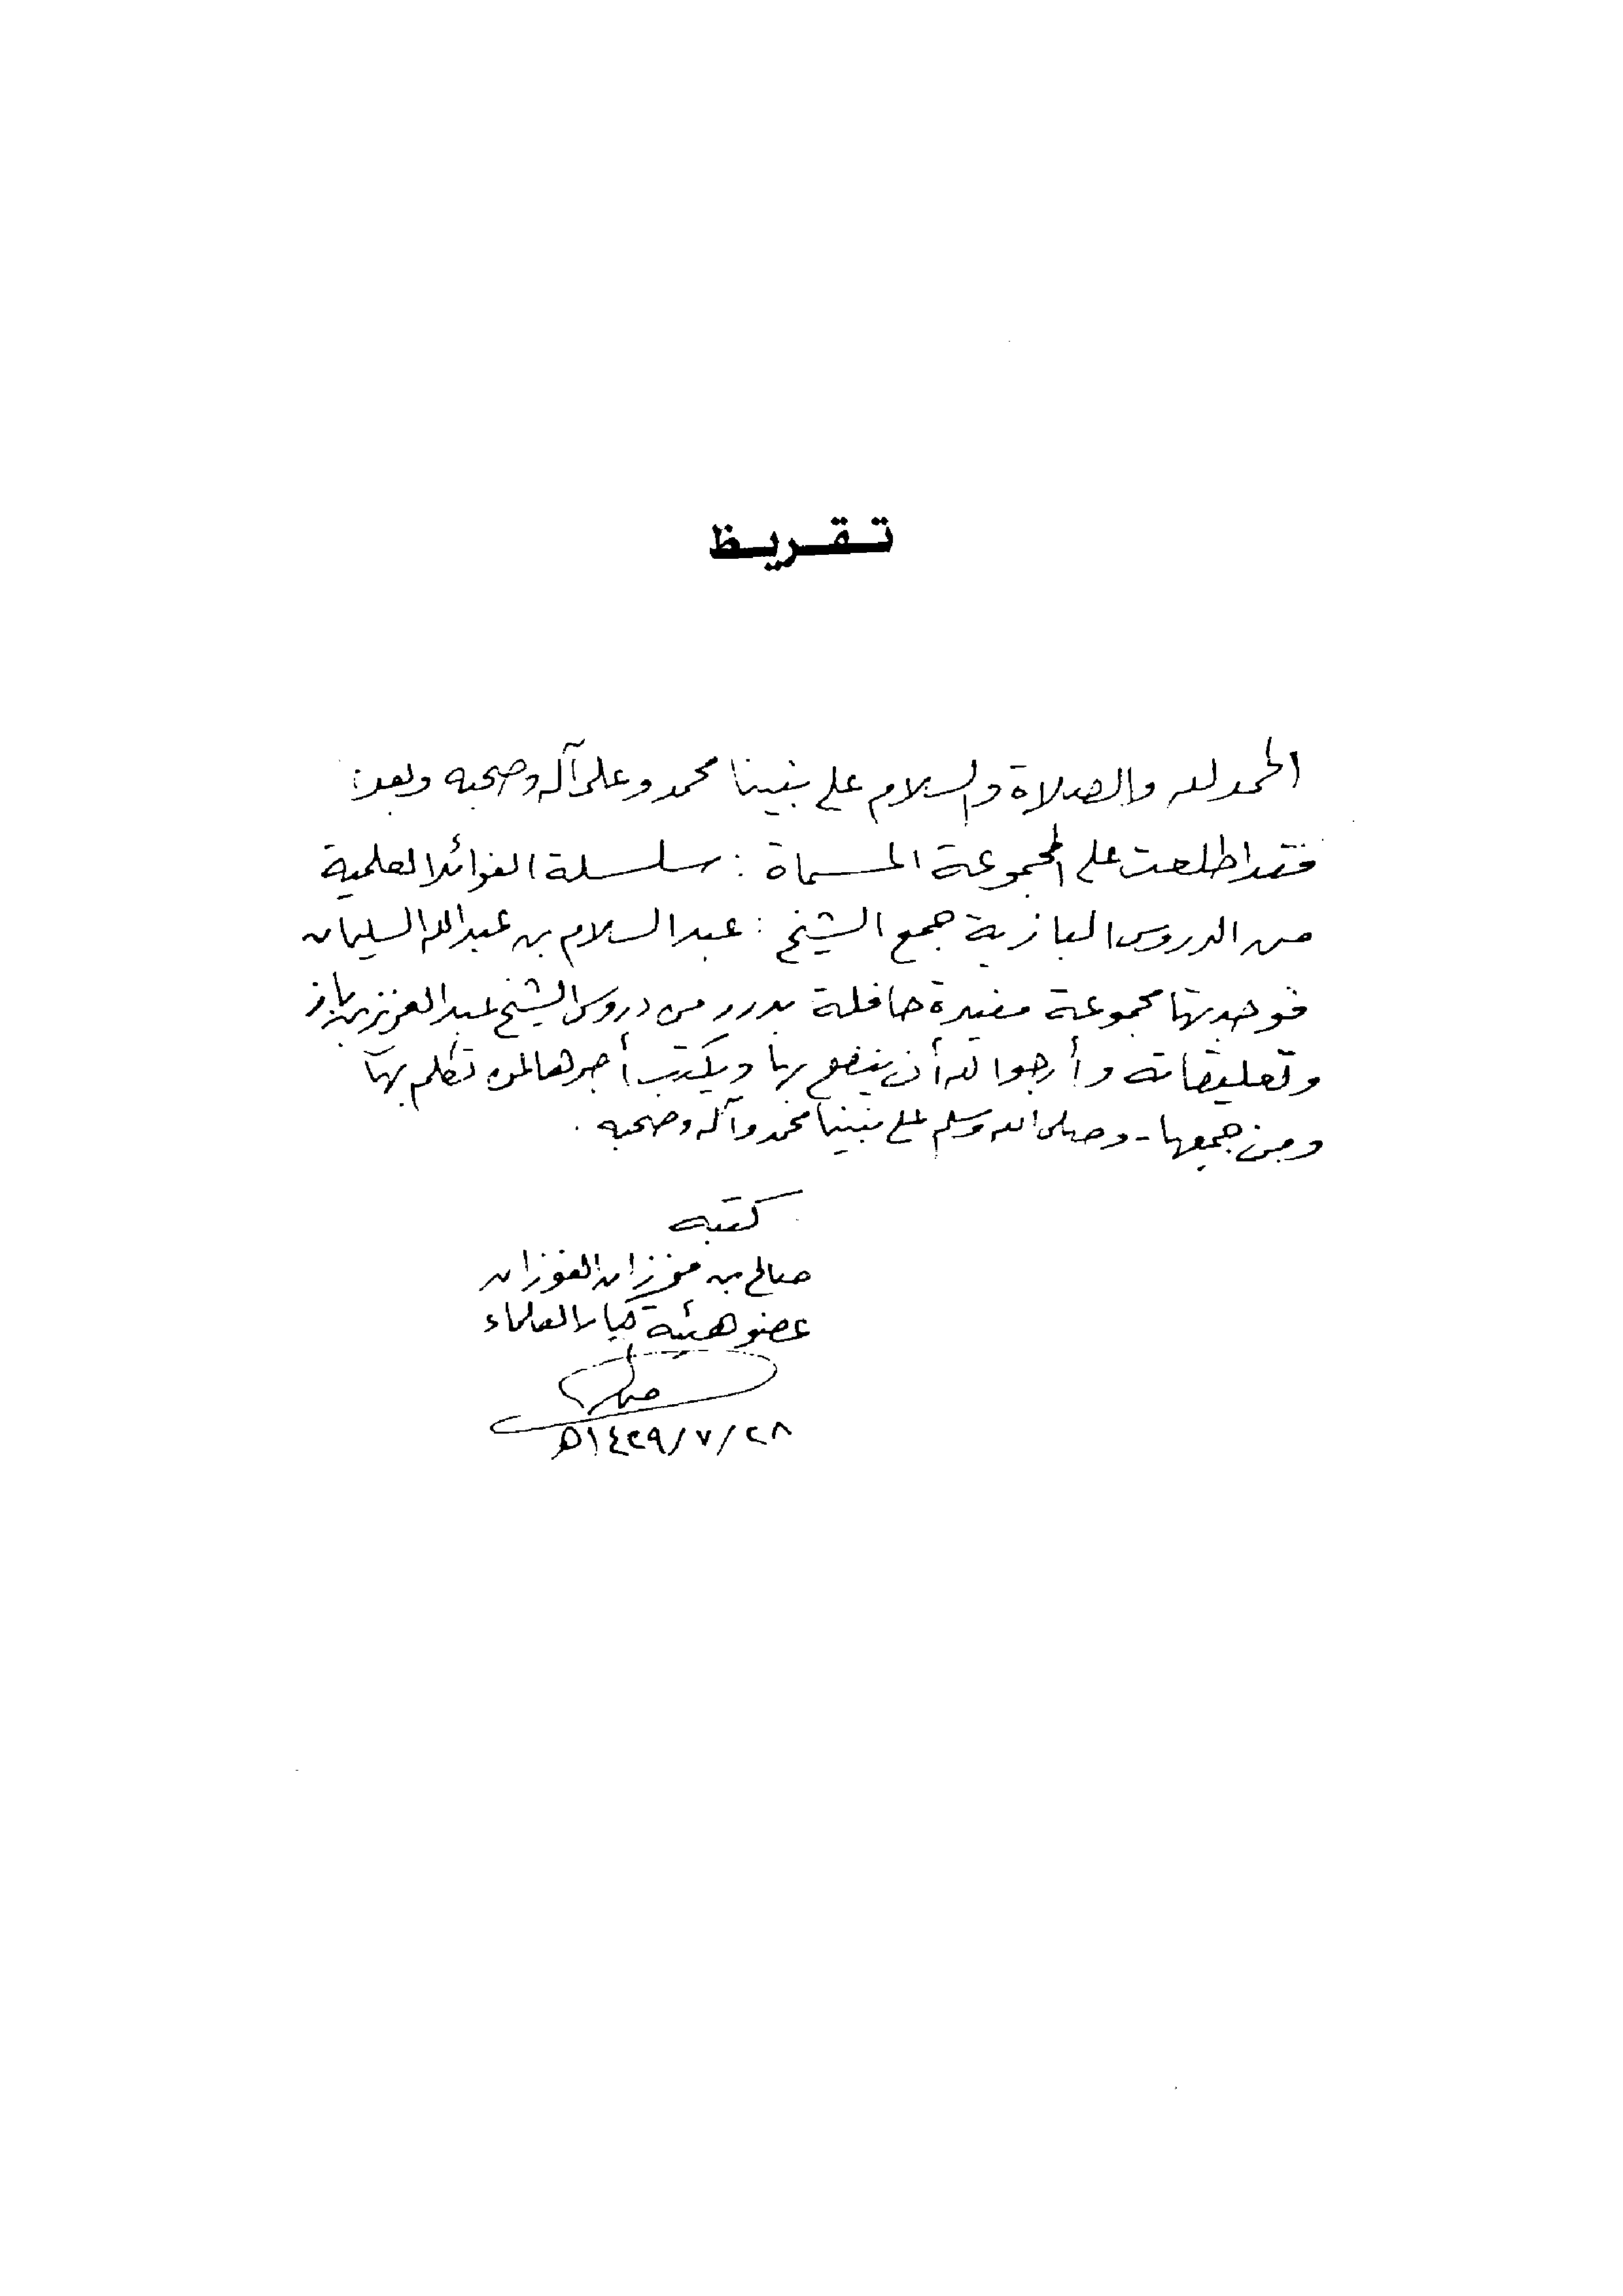 تقريظ
الحمد لله والصلاة والسلام على نبينا محمد وعلى آله وصحبه وبعد:
فقد اطلعت على المجموعة المسماة: سلسلة الفوائد العلمية
من الدروس البازية جمع الشيخ: عبد السلام بن عبد الله السليمان
فوجدتها مجموعة مفيدة حافلة بدرر من دروس الشيخ عبد العزيز بن باز
وتعليقاته وأرجو الله أن ينفع بها ويكتب أجرها لمن تكلم بها
ومن جمعها - وصلى الله وسلم على نبينا محمد وآله وصحبه.
كتبه
صالح بن فوزان الفوزان
عضو هيئة كبار العلماء
١٤٢٩/٧/٢٨هـ